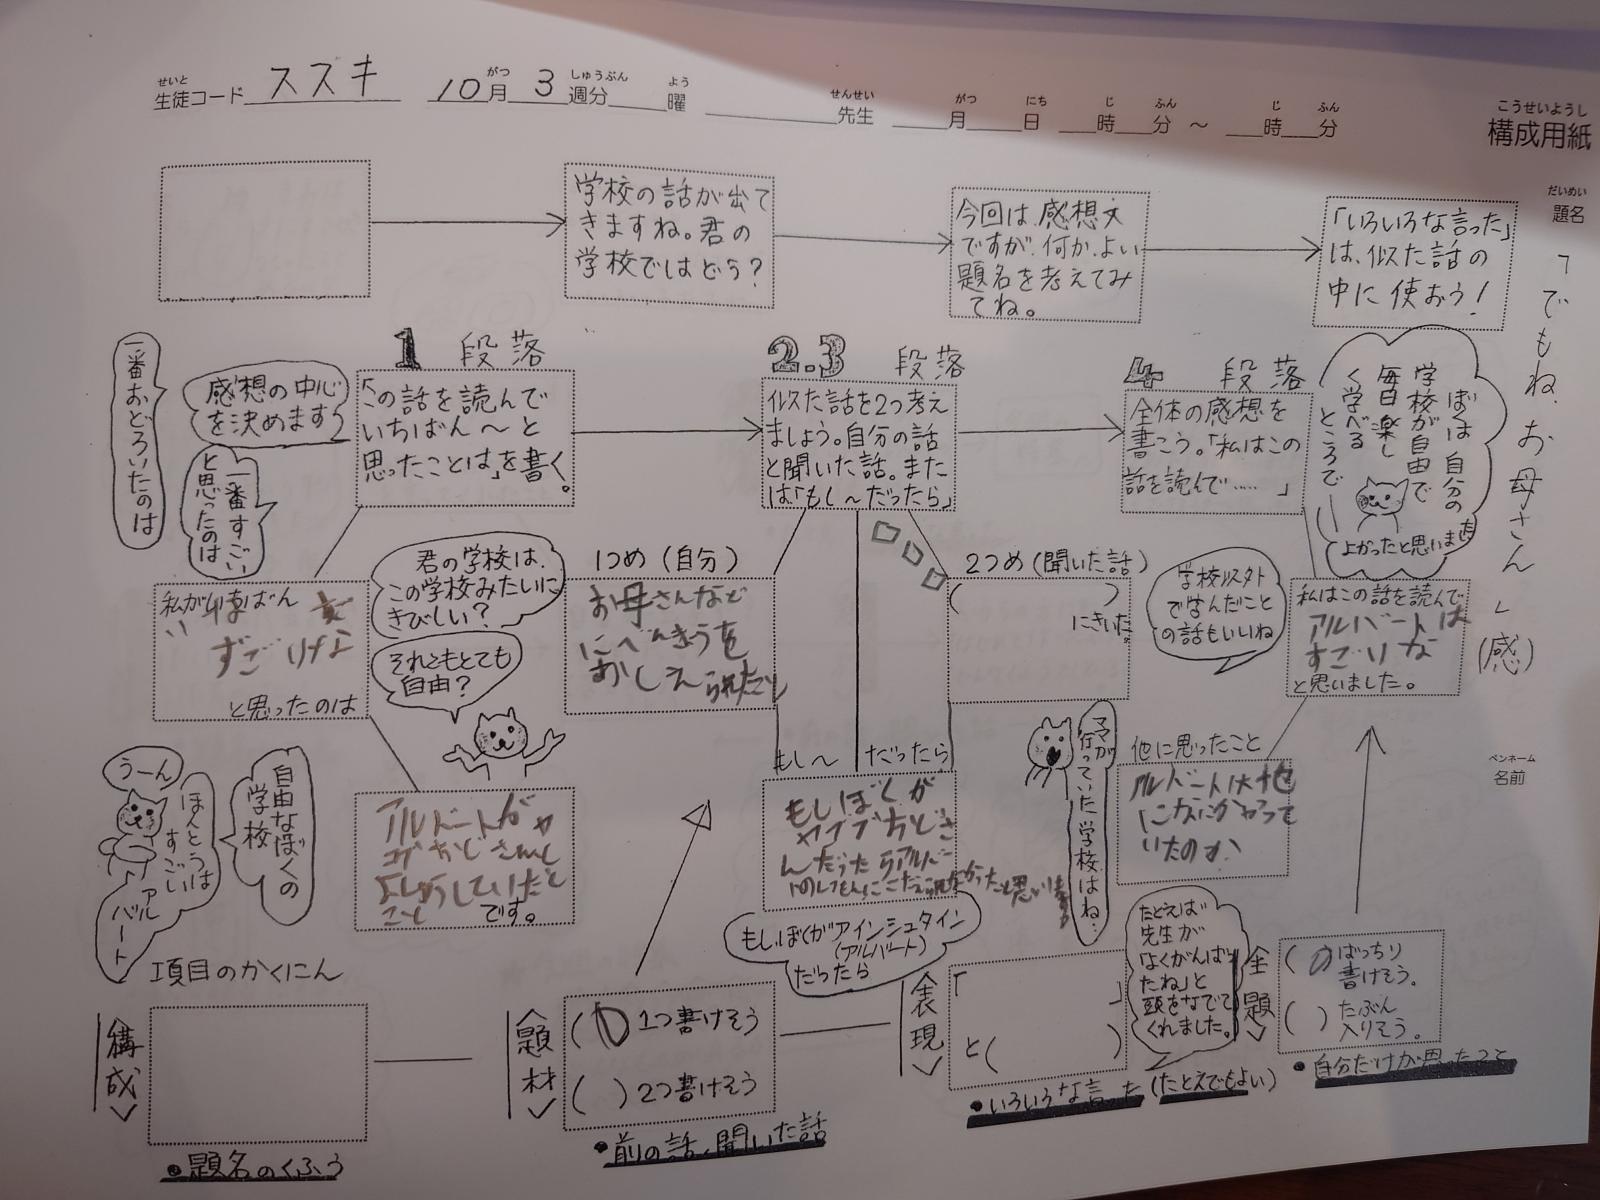 せいと
生徒コード ススキ
がつ しゅうぶん よう
10月 3週分 曜
せんせい
先生
がつ にち じ ふん じ ふん
月 日 時 分 ～ 時 分
こうせいようし
構成用紙
だいめい
題名
「でもね、お母さん」(感)
ペンネーム
名前
学校の話が出て
きますね。君の
学校ではどう？
今回は感想文
ですが、何か、よい
題名を考えてみ
てね。
「いろいろな言った」
は、似た話の
中に使おう！
1 段落
「この話を読んで
いちばん～と
思ったことは」を書く。
感想の中心
を決めます
一番おどろいたのは
一番すごい
と思ったのは
私がいちばん
すごいな
と思ったのは
です。
君の学校は、
この学校みたいに
きびしい？
それともとても
自由？
自由なぼくの
学校
うーん
ほんとうは
すごい
アル
バート
2.3 段落
似た話を2つ考え
ましょう。自分の話
と聞いた話。また
は「もし～だったら」
1つめ(自分)
お母さんなど
にべんきょうを
おしえられたこと
2つめ(聞いた話)
( )
にきいた。
もし～ だったら
もしぼくが
もしぼくがアインシュタイン
(アルバート)
だったら
ママが
行っていた学校はね…
4 段落
全体の感想を
書こう。「私はこの
話を読んで…… 」
ぼくは自分の
学校が自由で
毎日楽し
く学べる
ところで
よかったと思います
学校以外
で学んだこと
の話もいいね
私はこの話を読んで
アルバートは
すごいな
と思いました。
他に思ったこと
アルバートは他
になにかやって
いたのか
項目のかくにん
〈構成〉
・題名のくふう
〈題材〉
( ) 1つ書けそう
( ) 2つ書けそう
・前の話、聞いた話
〈表現〉
「 」
と( )
・いろいろな言った (たとえでもよい)
たとえば
先生が
「よくがんばっ
たね」と
頭をなでて
くれました。
〈主題〉
( ) ばっちり
書けそう。
( ) たぶん
入りそう。
・自分だけが思ったこと